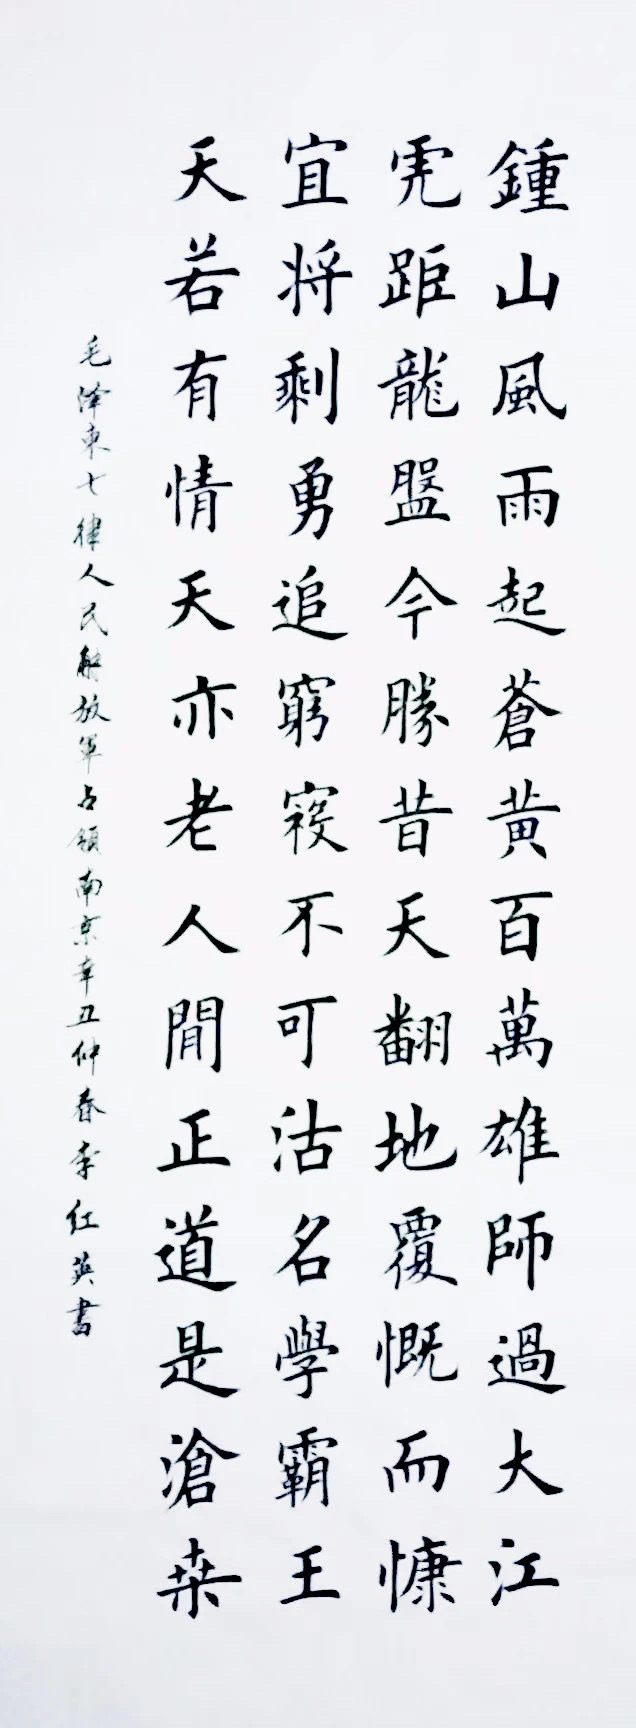 鍾山風雨起蒼黄百萬雄師過大江
虎距龍盤今勝昔天翻地覆慨而慷
宜将剩勇追窮寇不可沽名學霸王
天若有情天亦老人間正道是滄桑
毛泽東七律人民解放軍占領南京辛丑仲春李红英書